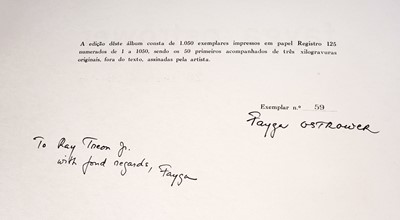 A edição dêste álbum consta de 1.050 exemplares impressos em papel Registro 125
numerados de 1 a 1050, sendo os 50 primeiros acompanhados de três xilogravuras
originais, fora do texto, assinadas pela artista.
Exemplar n.º 59
Fayga OSTROWER
To Ray Treon Jr.
with fond regards, Fayga